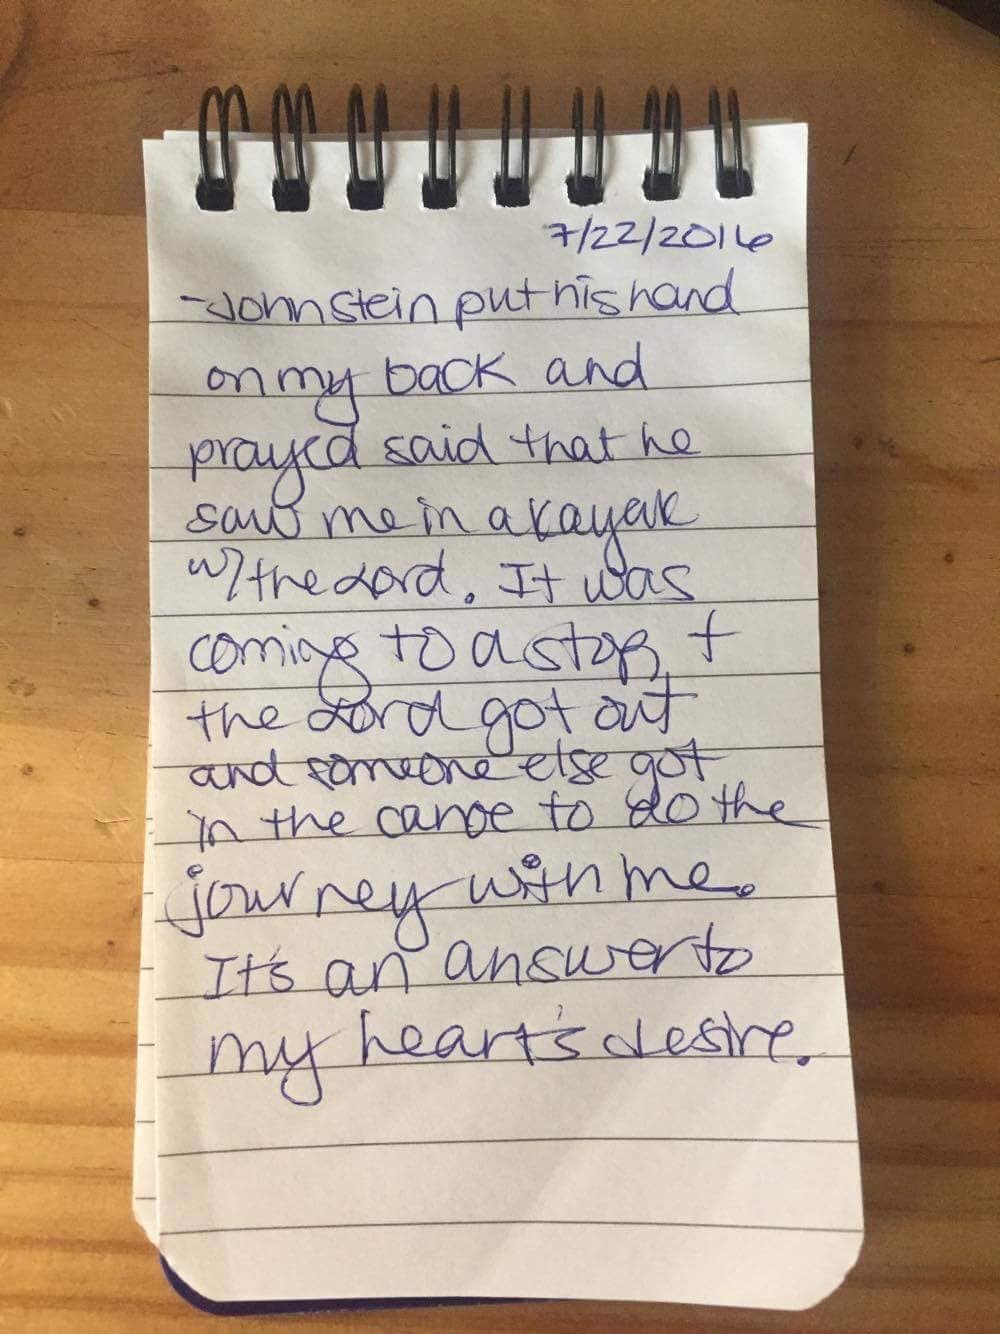 7/22/2016
-John stein put his hand
on my back and
prayed said that he
saw me in a kayak
w/ the Lord. It was
coming to a stop, +
the Lord got out
and someone else got
in the canoe to do the
journey with me.
It's an answer to
my heart's desire.